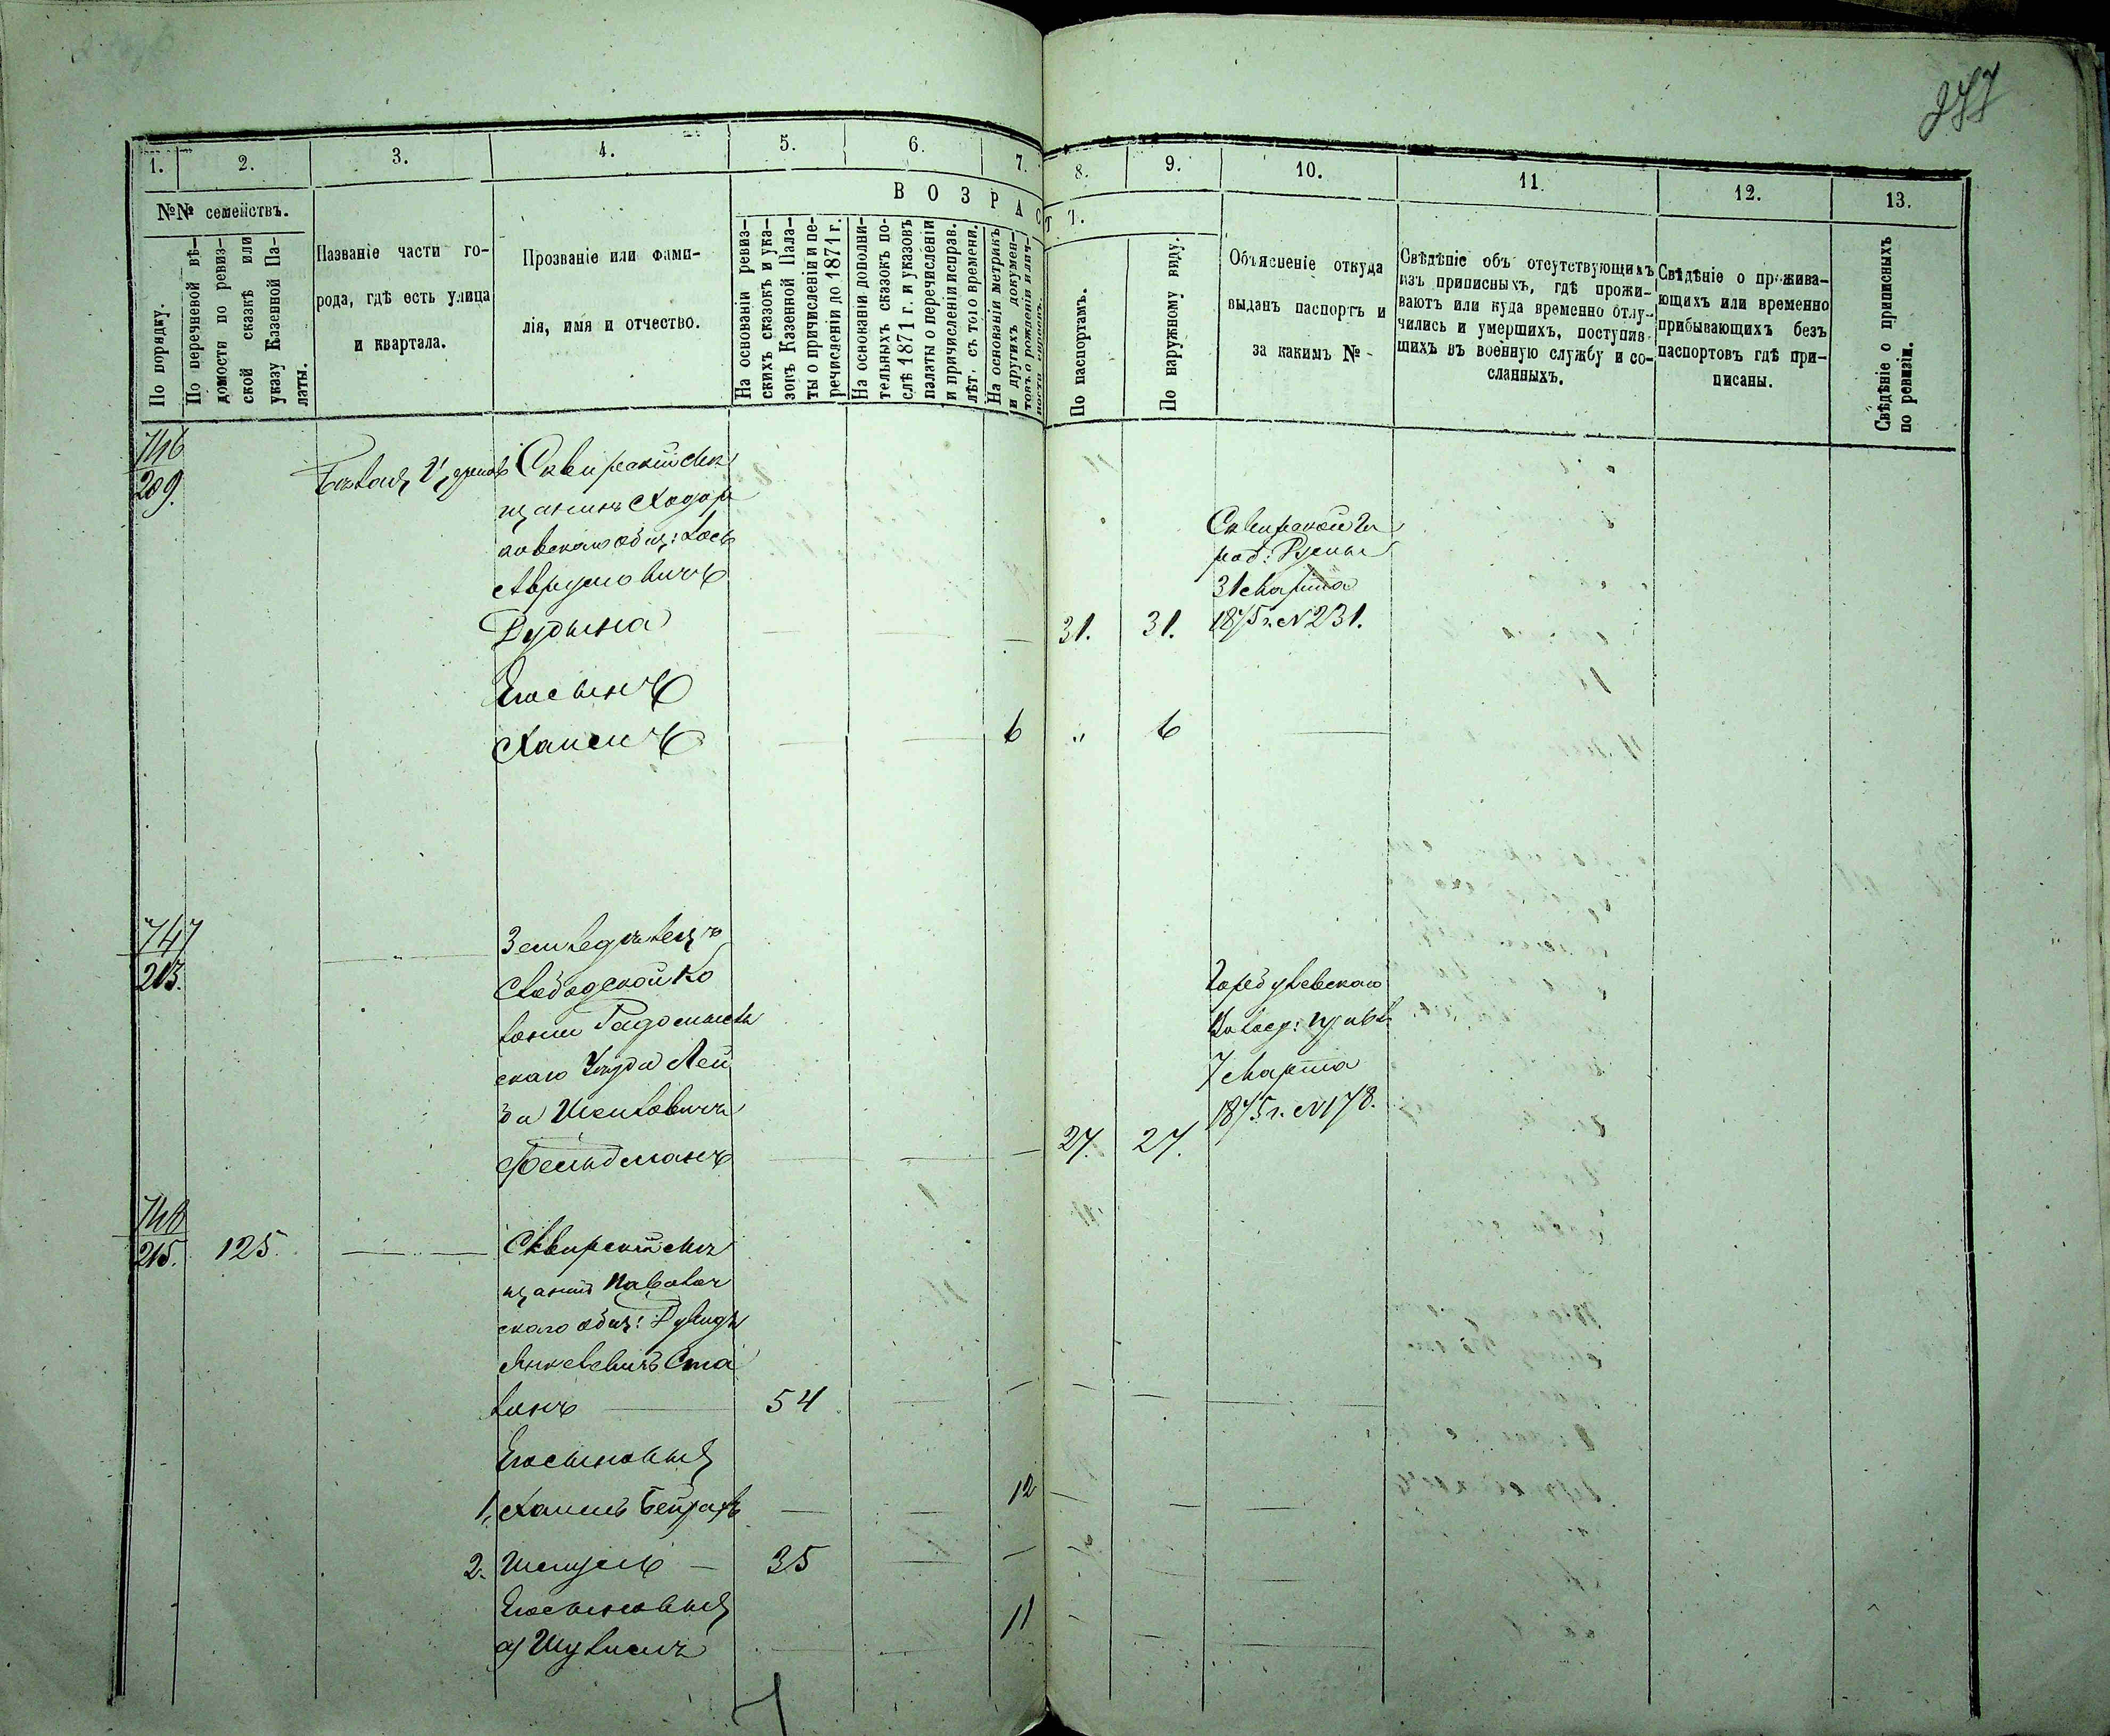 277
1.
2.
3.
4.
5.
6.
7.
8.
9.
10.
11.
12.
13.
№№ семействъ.
По порядку.
По перечневой вѣ-
домости по ревиз-
ской сказкѣ или
указу Казенной Па-
латы.
Названіе части го-
рода, гдѣ есть улица
и квартала.
Прозваніе или фами-
лія, имя и отчество.
ВОЗРАСТЪ.
На основаніи ревиз-
скихъ сказокъ и ука-
зовъ Казенной Пала-
ты о причисленіи и пе-
речисленіи до 1871 г.
На основаніи дополни-
тельныхъ сказокъ по-
слѣ 1871 г. и указовъ
палаты о перечисленіи
и причисленіи исправ.
лѣт. съ того времени.
На основаніи метрикъ
и другихъ докумен-
товъ о рожденіи и лич-
ности евреевъ.
По паспортамъ.
По наружному виду.
Объясненіе откуда
выданъ паспортъ и
за какимъ №-
Свѣдѣніе объ отсутствующихъ
изъ приписныхъ, гдѣ прожи-
ваютъ или куда временно отлу-
чились и умершихъ, поступив-
шихъ въ военную службу и со-
сланныхъ.
Свѣдѣніе о прожива-
ющихъ или временно
прибывающихъ безъ
паспортовъ гдѣ при-
писаны.
Свѣдѣніе о приписныхъ
по ревизіи.
746
209.
Сквирскій мѣ
щанинъ Ходор
ковскаго общ: Лось
Аврумовичъ
Рудына
31. 31.
Сквирской Го
род: Думы
31 Марта
1875 г. № 231.
Его сынъ
Хаимъ 6 " 6
747
213.
Земледѣлецъ
Слободской ко
лоніи Радомысль
скаго Уѣзда Лей
ба Шмилевичъ
Фельдманъ
27. 27.
Волос: правл
7 Марта
1875 г. № 178.
748
215. 125.
Сквирскій мѣ
щанинъ Паволоч
скаго общ:
Янкелевичъ Ста
линъ 54
Его сыновья
1, Хаимъ 12
2. Шмуль 35
Его сыновья
а) Шулимъ 11